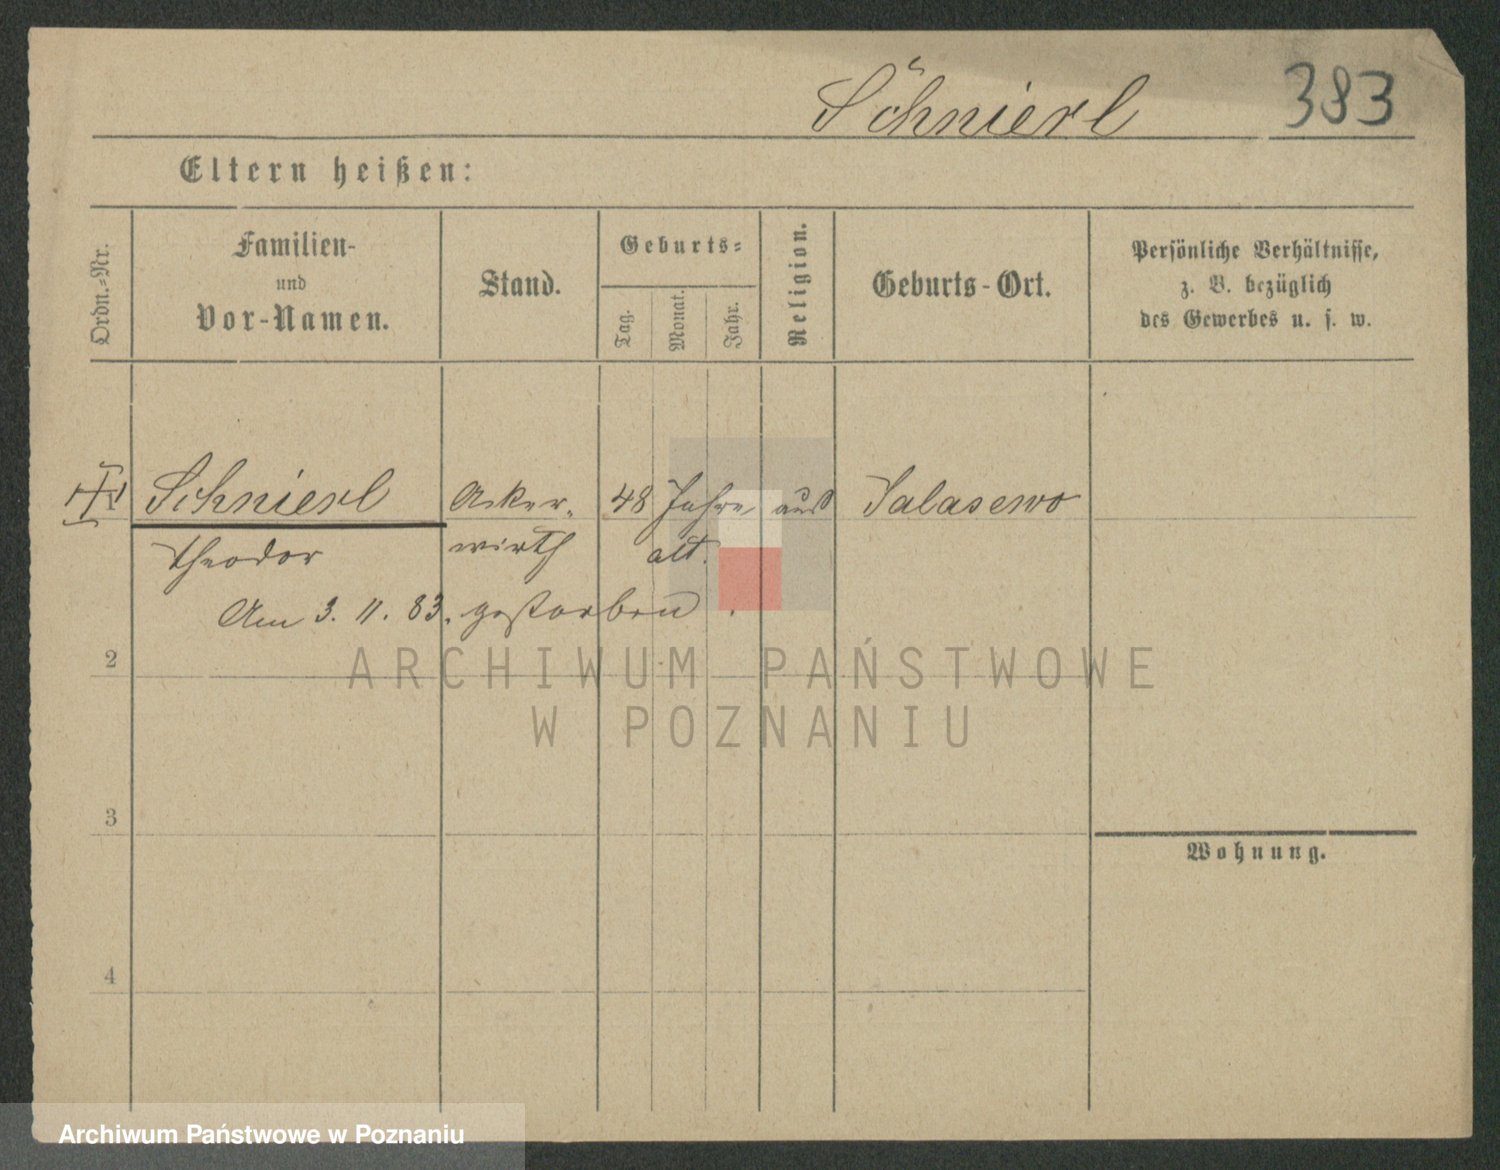 Schnierl 383
Eltern heißen:
Ordn.=Nr.
Familien-
und
Vor-Namen.
Stand.
Geburts=
Tag.
Monat.
Jahr.
Religion.
Geburts-Ort.
Persönliche Verhältnisse,
z. B. bezüglich
des Gewerbes u. s. w.
1 Schnierl Acker- 48 Jahre aus Salasewo
Theodor wirth alt.
Am 3. 11. 83. gestorben.
2
ARCHIWUM PAŃSTWOWE
W POZNANIU
3
Wohnung.
4
Archiwum Państwowe w Poznaniu